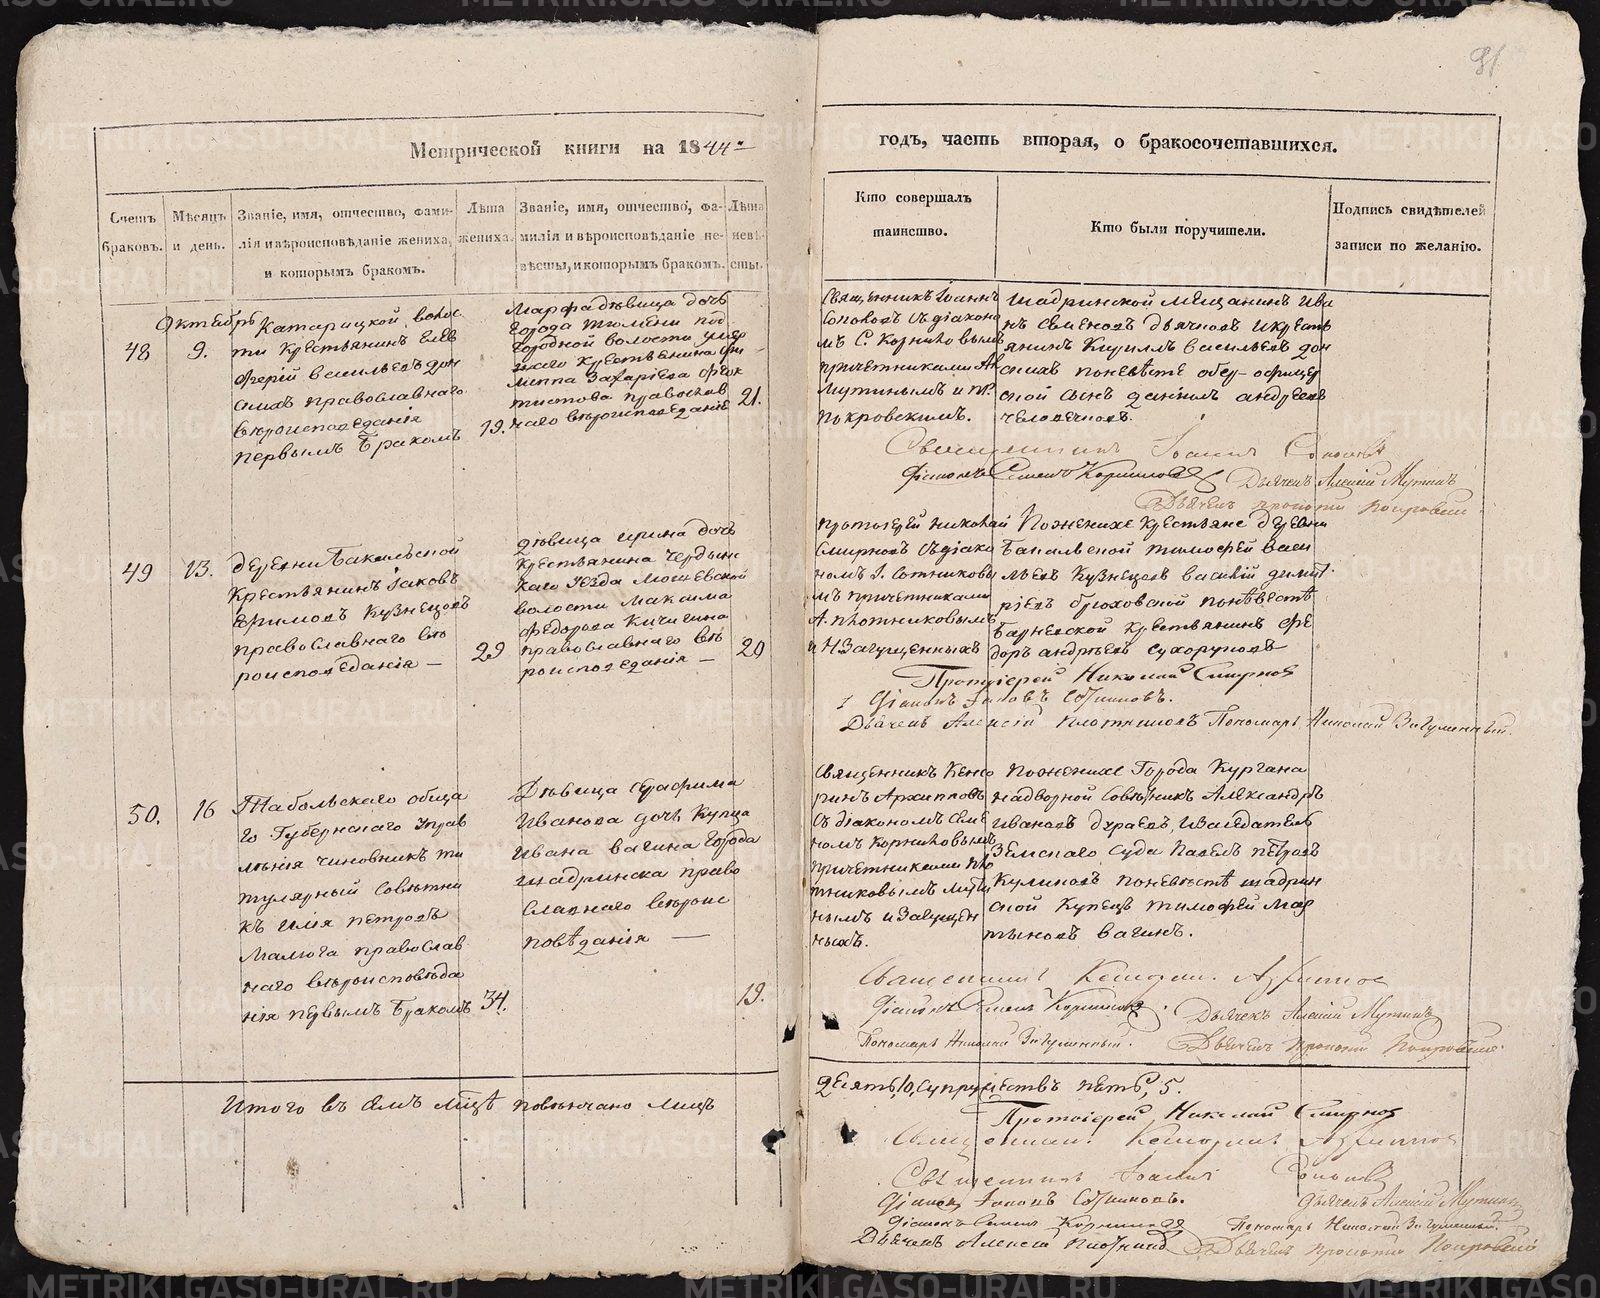 91
Метрической книги на 1844
годъ, часть вторая, о бракосочетавшихся.
Счетъ браковъ.
Мѣсяцъ и день.
Званіе, имя, отчество, фами-
лія и вѣроисповѣданіе жениха,
и которымъ бракомъ.
Лѣта жениха.
Званіе, имя, отчество, фа-
милія и вѣроисповѣданіе не-
вѣсты, и которымъ бракомъ.
Лѣта невѣ-
сты.
Кто совершалъ
таинство.
Кто были поручители.
Подпись свидѣтелей
записи по желанію.
Октебрь
48
9.
Катарицкой волос
ти Крестьянинъ Елев
ферій васильевъ дон
скихъ православнаго
вѣроисповеданія
первымъ Бракомъ
19.
Марфа дѣвица дочь
города тюмени под
городной волости умер
шаго крестьянина фи
липпа Захаріева
православ
наго вѣроисповеданіе
21.
Священникъ Іоаннъ
Сопоховъ съ діакона
мъ С. Корниловымъ
причетниками Ал
Мутинымъ и пр.
покровскимъ.
шадринской мещанинъ Ива
нъ семеновъ дьячковъ и кресть
янинъ Кирилъ васильевъ дон
скихъ поневѣсте обер-офицер
ской сынъ данилъ андреевъ
человечковъ.
Священникъ Іоаннъ
Діаконъ Семенъ Корниловъ
Дьячекъ Алексій Мутинъ
Дьячекъ прокопій покровскій
49
13.
деревни Бакальской
Крестьянинъ Іаковъ
Ефимовъ Кузнецовъ
православнаго вѣ
роисповеданія —
29
дѣвица ирина дочь
крестьянина чердын
каго уѣзда Мошевской
волости Максима
Федорова Кичигина
православнаго вѣ
роисповеданія —
20
протоіерей николай
Смирновъ съ діако
номъ І. Сотниковы
мъ причетниками
А. плотниковымъ
и Н Загуменныхъ
По женихе крестьяне деревни
Бакальской тимофей васи
льевъ Кузнецовъ василій димит
ріевъ брюховской поневестѣ
Барневской крестьянинъ фе
доръ андрѣевъ сухоруковъ
Протоіерей Николай Смирновъ
Діаконъ Іаковъ Сотниковъ.
Дьячекъ Алексій плотниковъ Пономарь Николай Загуменный.
50.
16
Табольскаго обща
го Губернскаго Управ
лѣнія чиновникъ ти
тулярный совѣтни
къ илія петровъ
Малюга православ
наго вѣроисповѣда
нія первымъ Бракомъ
34.
Дѣвица Серафима
Иванова дочь Купца
Ивана вагина города
шадринска право
славнаго вѣроис
повѣданія —
19.
Священникъ Кенсо
ринъ Архиповъ
съ діакономъ семе
номъ корниловымъ
причетниками пло
тниковымъ мути
нымъ и Загумен
ныхъ.
По женихе Города Кургана
надворной совѣтникъ Александръ
Ивановъ дураевъ, и заседатель
Земскаго суда павелъ петровъ
Куликовъ поневѣстѣ шадрин
ской купецъ тимофей мар
тыновъ вагинъ.
Священникъ Кенсоринъ Архиповъ
Діаконъ Семенъ Корниловъ.
Дьячекъ Алексій Мутинъ
Пономарь Николай Загуменный.
Дьячекъ прокопій покровскій
Итого въ семъ мѣсяцѣ повѣнчано лицъ
десять, 10, супружествъ пять, 5.
Протоіерей Николай Смирновъ
Священникъ Кенсоринъ Архиповъ
Священникъ Іоаннъ
Діаконъ Іаковъ Сотниковъ.
Дьячекъ Алексій Мутинъ
Діаконъ Семенъ Корниловъ
Пономарь Николай Загуменный.
Дьячекъ Алексій Плотников
Дьячекъ прокопій покровскій
METRIKI.GASO-URAL.RU